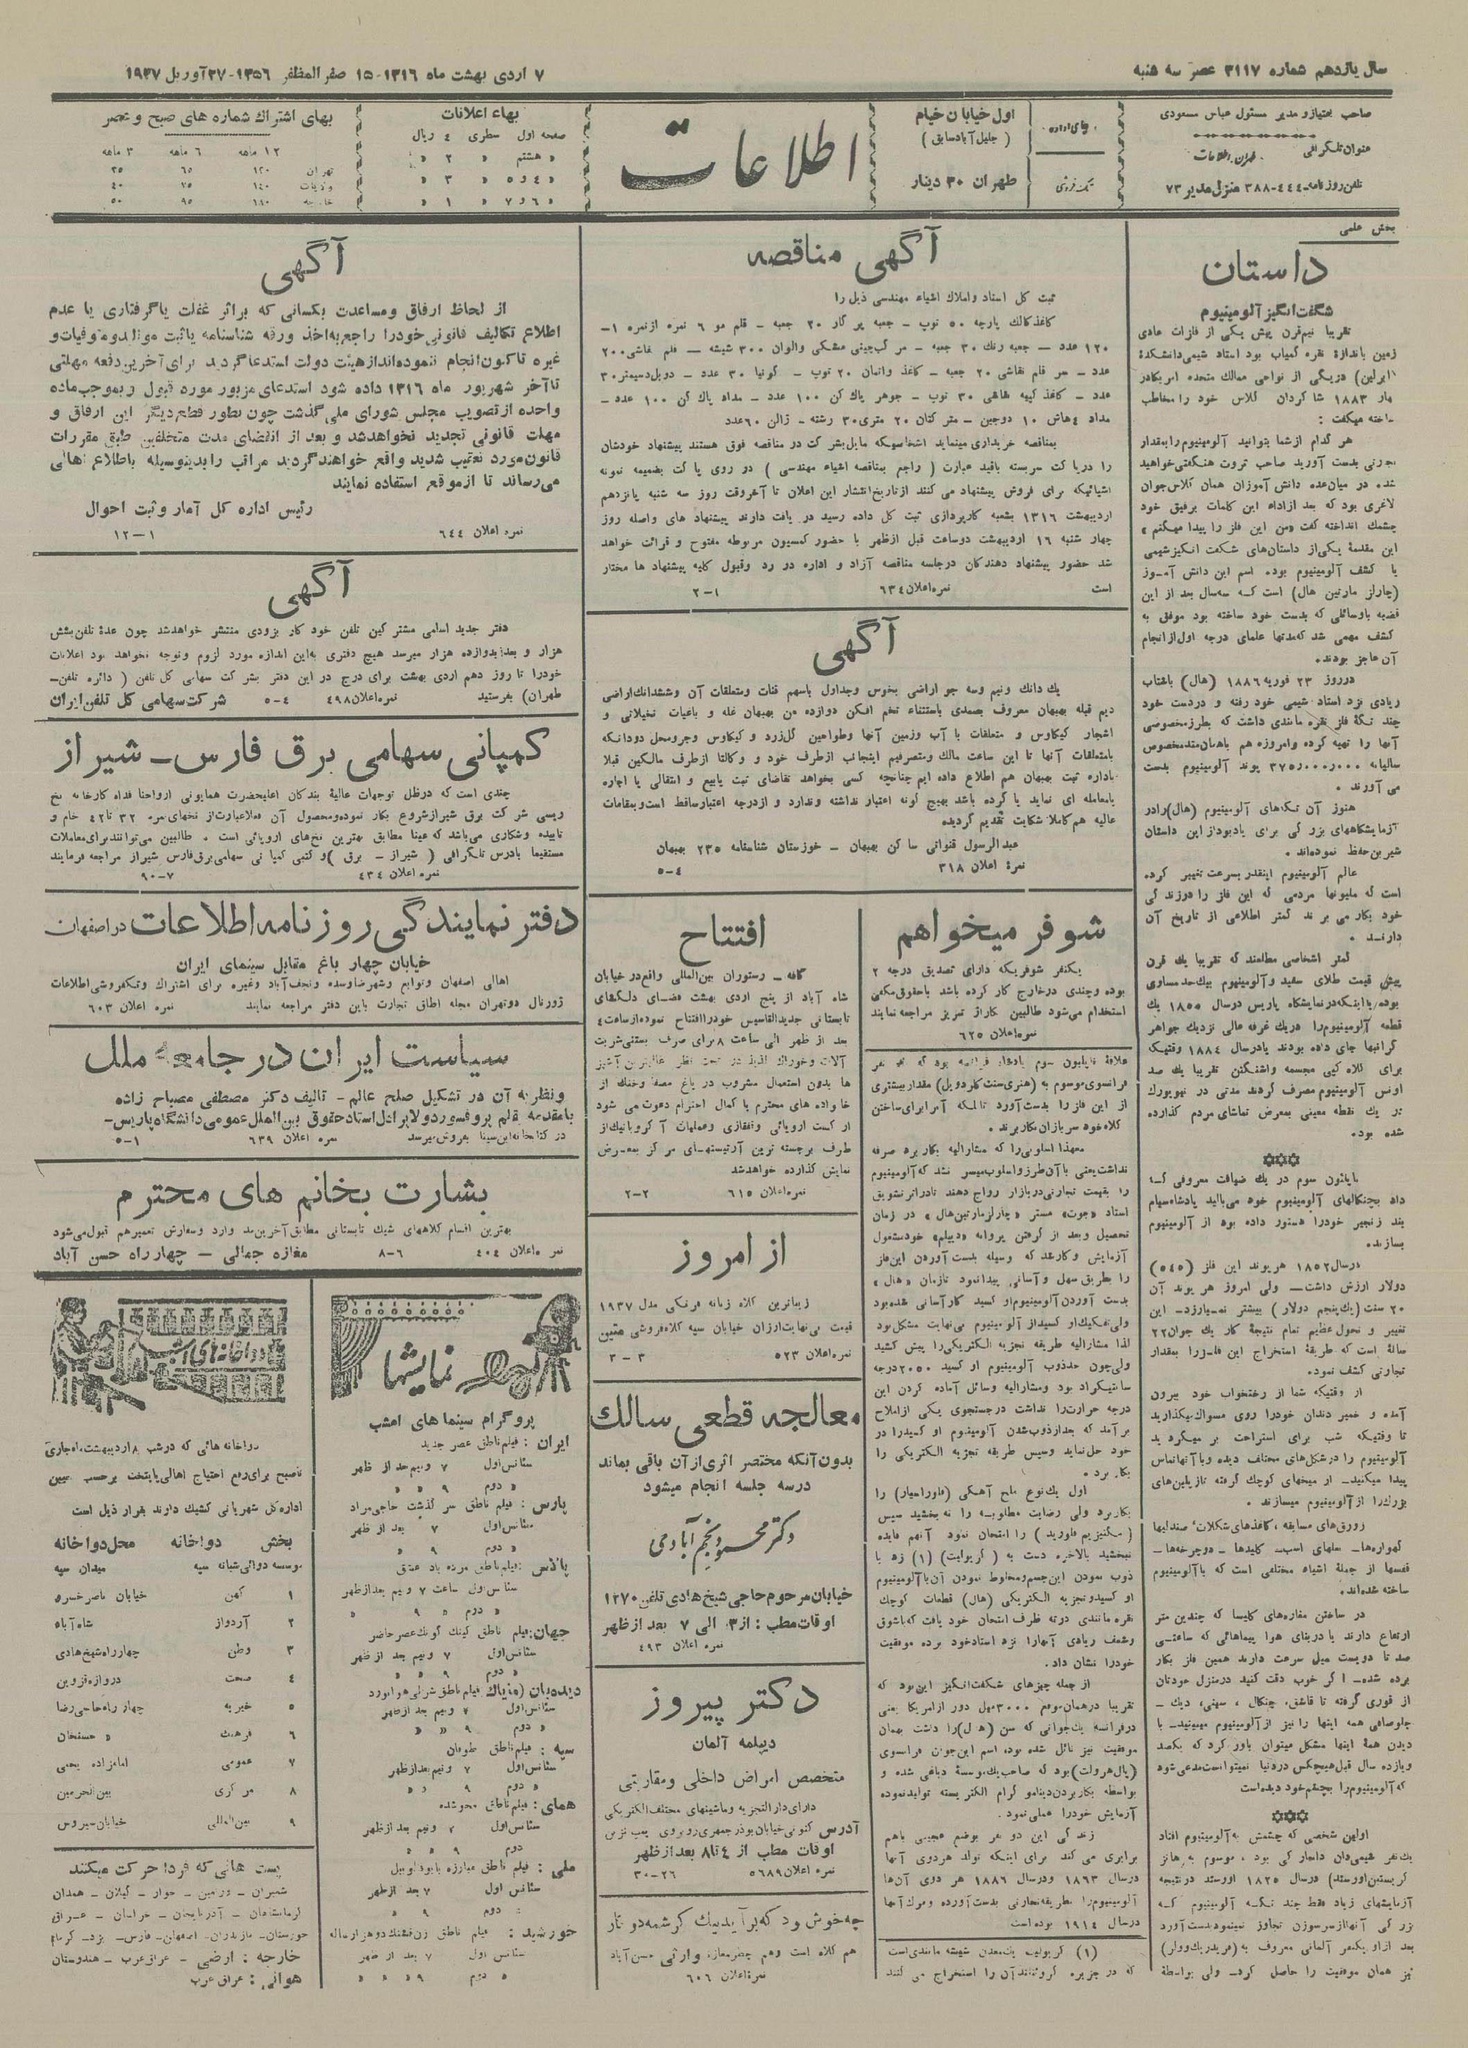 سال یازدهم شماره ۳۱۱۷ عصر سه شنبه
۷ اردی بهشت ماه ۱۳۱۶-۱۵ صفر المظفر ۱۳۵۶-۲۷ آوریل ۱۹۳۷
صاحب امتیاز و مدیر مسئول عباس مسعودی
عنوان تلگرافی طهران اطلاعات
تلفن روزنامه ۴۴۴-۳۸۸ منزل مدیر ۷۳
جای اداره
تک فروشی
اول خیابان خیام
(جلیل آباد سابق)
طهران ۳۰ دینار
اطلاعات
بهاء اعلانات
صفحه اول سطری ۴ ریال
« هشتم « ۲ «
« ۴ و ۵ « ۳ «
« ۶ و ۷ « ۱ «
بهای اشتراک شماره های صبح و عصر
۱۲ ماهه ۶ ماهه ۳ ماهه
تهران ۱۲۰ ۶۵ ۳۵
ولایات ۱۴۰ ۷۵ ۴۰
خارجه ۱۸۰ ۹۵ ۵۰
بخش علمی
داستان
شگفت انگیز آلومینیوم
تقریبا نیم قرن پیش یکی از فلزات عادی
زمین باندازۀ نقره کمیاب بود استاد شیمی دانشکدۀ
(ابرلین) در یکی از نواحی ممالک متحده امریکا در
بهار ۱۸۸۳ شاگردان کلاس خود را مخاطب
ساخته میگفت :
هر کدام از شما بتوانید آلومینیوم را بمقدار
تجارتی بدست آورید صاحب ثروت هنگفتی خواهید
شد. در میان عده دانش آموزان همان کلاس جوان
لاغری بود که بعد از اداء این کلمات برفیق خود
چشمک انداخته گفت «من این فلز را پیدا میکنم»
این مقدمۀ یکی از داستان های شگفت انگیز شیمی
یا کشف آلومینیوم بود. اسم این دانش آموز
(چارلز مارتین هال) است که سه سال بعد از این
قضیه با وسائلی که بدست خود ساخته بود موفق به
کشف مهمی شد که مدتها علمای درجه اول از انجام
آن عاجز بودند.
در روز ۲۳ فوریه ۱۸۸۶ (هال) باشتاب
زیادی نزد استاد شیمی خود رفته و در دست خود
چند تکۀ فلز نقره مانندی داشت که بطرز مخصوصی
آنها را تهیه کرده و امروزه هم با همان متد مخصوص
سالیانه ۳۷۵٫۰۰۰٫۰۰۰ پوند آلومینیوم بدست
می آورند.
هنوز آن تکه های آلومینیوم (هال) را در
آزمایشگاههای بزرگی برای یادبود از این داستان
شیرین حفظ نموده اند.
عالم آلومینیوم اینقدر بسرعت تغییر کرده
است که ملیونها مردمی که این فلز را در زندگی
خود بکار می برند کمتر اطلاعی از تاریخ آن
دارند.
کمتر اشخاصی مطلعند که تقریبا یک قرن
پیش قیمت طلای سفید و آلومینیوم بیک حد مساوی
بوده، با اینکه در نمایشگاه پاریس در سال ۱۸۵۵ یک
قطعه آلومینیوم را در یک غرفه عالی نزدیک جواهر
گرانبها جای داده بودند یا در سال ۱۸۸۴ وقتیکه
برای کلاه کپی مجسمه واشنگتن تقریبا یک صد
اونس آلومینیوم مصرف کردند مدتی در نیویورک
در یک نقطه معینی بمعرض تماشای مردم گذارده
شده بود.
ناپلئون سوم در یک ضیافت معروفی که
داد بچنگالهای آلومینیوم خود می بالید پادشاه سیام
بند زنجیر خود را دستور داده بود از آلومینیوم
بسازند.
در سال ۱۸۵۲ هر پوند این فلز (۵۴۵)
دولار ارزش داشت — ولی امروز هر پوند آن
۲۰ سنت (یک پنجم دولار) بیشتر نمیارزد — این
تغییر و تحول عظیم تمام نتیجۀ کار یک جوان ۲۲
سالۀ است که طریقۀ استخراج این فلز را بمقدار
تجارتی کشف نمود.
از وقتیکه شما از رختخواب خود بیرون
آمده و خمیر دندان خود را روی مسواک میگذارید
تا وقتیکه شب برای استراحت بر میگردید
آلومینیوم را در شکل های مختلف دیده و با آنها تماس
پیدا میکنید — از میخهای کوچک گرفته تا زپلین های
بزرگ را از آلومینیوم میسازند.
زورق های مسابقه، کاغذهای شکلات صندلیها
گهواره ها — نعلهای اسب — کلیدها — دوچرخه ها —
قفسها از جمله اشیاء مختلفی است که با آلومینیوم
ساخته شده اند.
در ساختن مناره های کلیسا که چندین متر
ارتفاع دارند یا در بنای هوا پیماهائی که ساعتی
صد تا دویست میل سرعت دارند همین فلز بکار
برده شده — اگر خوب دقت کنید در منزل خودتان
از قوری گرفته تا قاشق، چنگال، سینی، دیک —
چلوصافی همه اینها را نیز از آلومینیوم میبینید — با
دیدن همۀ اینها مشکل میتوان باور کرد که یکصد
و یازده سال قبل هیچکس در دنیا نمیتوانست مدعی شود
که آلومینیوم را بچشم خود دیده است
اولین شخصی که چشمش به آلومینیوم افتاد
یک نفر شیمی دان دانمارکی بود، موسوم به هانز
کریستین اورستد) در سال ۱۸۲۵ اورستد در نتیجه
آزمایشهای زیاد فقط چند تکه آلومینیوم که
بزرگی آنها از سر سوزن تجاوز نمینمود بدست آورد
بعد از او یکنفر آلمانی معروف به (فریدریک وولر)
نیز همان موفقیت را حاصل کرد — ولی بواسطۀ
آگهی مناقصه
ثبت کل اسناد و املاک اشیاء مهندسی ذیل را
کاغذ کالک پارچه ۵۰ توپ — جعبه پرگار ۲۰ جعبه — قلم مو ۶ نمره از نمره ۱—
۱۲۰ عدد — جعبه رنگ ۳۰ جعبه — مرکب چینی مشکی و الوان ۳۰۰ شیشه — قلم نقاشی ۲۰۰
عدد — سر قلم نقاشی ۲۰ جعبه — کاغذ واتمان ۲۰ توپ — گونیا ۳۰ عدد — دوبل دسیمتر ۳۰
عدد — کاغذ کپیه شاهی ۳۰ توپ — جوهر پاک کن ۱۰۰ عدد — مداد پاک کن ۱۰۰ عدد —
مداد ۴ هاش ۱۰ دوجین — متر کتان ۲۰ متری ۳۰ رشته — ژالن ۶۰ عدد
بمناقصه خریداری مینماید اشخاصیکه مایل بشرکت در مناقصه فوق هستند پیشنهاد خودشان
را در پاکت سربسته باقید عبارت (راجع بمناقصه اشیاء مهندسی) در روی پاکت بضمیمه نمونه
اشیائیکه برای فروش پیشنهاد می کنند از تاریخ انتشار این اعلان تا آخر وقت روز سه شنبه پانزدهم
اردیبهشت ۱۳۱۶ بشعبه کارپردازی ثبت کل داده رسید دریافت دارند پیشنهاد های واصله روز
چهار شنبه ۱۶ اردیبهشت دو ساعت قبل از ظهر با حضور کمسیون مربوطه مفتوح و قرائت خواهد
شد حضور پیشنهاد دهندگان در جلسه مناقصه آزاد و اداره در رد و قبول کلیه پیشنهاد ها مختار
است نمره اعلان ۶۳۴ ۱-۲
آگهی
یک دانگ و نیم و سه جو اراضی بخوس و جداول باسهم قنات و متعلقات آن و ششدانک اراضی
دیم قبله بهبهان معروف بصمدی باستثناء تخم افکن دوازده من بهبهان غله و باغیات نخیلاتی و
اشجار کیکاوس و متعلقات با آب و زمین آنها و طواحین گلزرد و کیکاوس و جرو محل دو دانگه
بامتعلقات آنها تا این ساعت مالک و متصرفیم اینجانب از طرف خود و وکالتا از طرف مالکین قبلا
باداره ثبت بهبهان هم اطلاع داده ایم چنانچه کسی بخواهد تقاضای ثبت یا بیع و انتقالی یا اجاره
یا معامله ای نماید یا کرده باشد بهیچ گونه اعتبار نداشته و ندارد و از درجه اعتبار ساقط است و بمقامات
عالیه هم کاملا شکایت تقدیم گردیده
عبدالرسول قنواتی ساکن بهبهان — خوزستان شناسنامه ۲۳۵ بهبهان
نمرۀ اعلان ۳۱۸ ۴-۵
شوفر میخواهم
یکنفر شوفریکه دارای تصدیق درجه ۲
بوده و چندی در خارج کار کرده باشد با حقوق مکفی
استخدام می شود طالبین گاراژ تبریز مراجعه نمایند
نمره اعلان ۶۲۵
علاقۀ ناپلیون سوم پادشاه فرانسه بود که یک نفر
فرانسوی موسوم به (هنری سنت کلر دویل) مقدار بیشتری
از این فلز را بدست آورد تا اینکه آنرا برای ساختن
کلاه خود سربازان بکار برند.
معهذا اسلوبی را که مشارالیه بکار برد صرفه
نداشت یعنی با آن طرز و اسلوب میسر نشد که آلومینیوم
را بقیمت تجارتی در بازار رواج دهند تا در اثر تشویق
استاد «جوت» مستر «چارلز مارتین هال» در زمان
تحصیل و بعد از گرفتن پروانه «دیپلم» خود مشغول
آزمایش و کار شد که وسیله بدست آوردن این فلز
را بطریق سهل و آسانی پیدا نمود تا زمان «هال»
بدست آوردن آلومینیوم او کسید کار آسانی شده بود
ولی تفکیک او کسید از آلومینیوم بی نهایت مشکل بود
لذا مشارالیه طریقه تجزیه الکتریکی را پیش کشید
ولی چون حد ذوب آلومینیوم او کسید ۲۰۵۰ درجه
سانتیگراد بود و مشارالیه وسائل آماده کردن این
درجه حرارت را نداشت در جستجوی یکی از املاح
بر آمد که بعد از ذوب شدن آلومینیوم او کسید را در
خود حل نماید و سپس طریقه تجزیه الکتریکی را
بکار برد.
اول یک نوع ملح آهکی (فلوراسپار) را
بکار برد ولی رضایت مطلوبه را نه بخشید سپس
(مگنیزیم فلورید) را امتحان نمود آنهم فایده
نبخشید بالاخره دست به (کریولیت) (۱) زده با
ذوب نمودن این جسم و مخلوط نمودن آن با آلومینیوم
او کسید و تجزیه الکتریکی (هال) قطعات کوچک
نقره مانندی در ته ظرف امتحان خود یافت که با شوق
و شعف زیادی آنها را نزد استاد خود برده موفقیت
خود را نشان داد.
از جمله چیزهای شگفت انگیز این بود که
تقریبا در همان موقع ۳۰۰۰ میل دور از امریکا یعنی
در فرانسه یک جوانی که سن (هال) را داشت بهمان
موفقیت نیز نائل شده بود، اسم این جوان فرانسوی
(پال هرولت) بود که صاحب یک موسسۀ دباغی شده و
بواسطه بکار بردن دینامو گرام الکتریسته تولید نموده
آزمایش خود را عملی نمود.
زندگی این دو نفر بوضع عجیبی باهم
برابری می کند برای اینکه تولد هر دوی آنها
در سال ۱۸۶۳ و در سال ۱۸۸۶ هر دوی آنها
آلومینیوم را بطریقه تجارتی بدست آورده و مرگ آنها
در سال ۱۹۱۴ بوده است
(۱) کریولیت یک معدن شیشه مانندی است
که در جزیره گروئنلند آن را استخراج می کنند
افتتاح
کافه — رستوران بین المللی واقع در خیابان
شاه آباد از پنج اردی بهشت فضای دلگشای
تابستانی جدید التاسیس خود را افتتاح نموده از ساعت ۴
بعد از ظهر الی ساعت ۸ برای صرف بستنی شربت
آلات و خوراک لذیذ در تحت نظر عالیترین آشپز
ها بدون استعمال مشروب در باغ مصفا و خنک از
خانواده های محترم با کمال احترام دعوت می شود
ارکست اروپائی و قفقازی و عملیات آکروباتیک از
طرف برجسته ترین آرتیستهای مرکز بمعرض
نمایش گذارده خواهد شد
نمره اعلان ۶۱۵ ۲-۲
از امروز
زیباترین کلاه زنانه فرنگی مدل ۱۹۳۷
قیمت بی نهایت ارزان خیابان سپه کلاه فروشی متین
نمره اعلان ۵۲۳ ۳-۳
معالجه قطعی سالک
بدون آنکه مختصر اثری از آن باقی بماند
در سه جلسه انجام میشود
دکتر محمود نجم آبادی
خیابان مرحوم حاجی شیخ هادی تلفن ۱۲۷۰
اوقات مطب : از ۳ الی ۷ بعد از ظهر
نمره اعلان ۴۹۳
دکتر پیروز
دیپلمه آلمان
متخصص امراض داخلی و مقاربتی
دارای دار التجزیه و ماشینهای مختلف الکتریکی
آدرس کنونی خیابان بوذرجمهری روبروی پمپ بنزین
اوقات مطب از ۴ تا ۸ بعد از ظهر
نمره اعلان ۵۶۸۹ ۲۶-۳۰
چه خوش بود که برآید بیک کرشمه دو کار
هم کلاه است وهم چطر مغازه وارثی حسن آباد
نمره اعلان ۶۰۶
آگهی
از لحاظ ارفاق و مساعدت بکسانی که براثر غفلت یا گرفتاری یا عدم
اطلاع تکالیف قانونی خود را راجع به اخذ ورقه شناسنامه یا ثبت موالید و متوفیات و
غیره تاکنون انجام ننموده اند از هیئت دولت استدعا گردید برای آخرین دفعه مهلتی
تا آخر شهریور ماه ۱۳۱۶ داده شود استدعای مزبور مورد قبول و بموجب ماده
واحده از تصویب مجلس شورای ملی گذشت چون بطور قطع دیگر این ارفاق و
مهلت قانونی تجدید نخواهد شد و بعد از انقضای مدت متخلفین طبق مقررات
قانون مورد تعقیب شدید واقع خواهند گردید مراتب را بدینوسیله باطلاع اهالی
می رساند تا از موقع استفاده نمایند
رئیس اداره کل آمار و ثبت احوال
نمره اعلان ۶۴۴ ۱-۱۲
آگهی
دفتر جدید اسامی مشترکین تلفن خود کار بزودی منتشر خواهد شد چون عدۀ تلفن بشش
هزار و بعدا بدوازده هزار میرسد هیچ دفتری به این اندازه مورد لزوم و توجه نخواهد بود اعلانات
خود را تا روز دهم اردی بهشت برای درج در این دفتر بشرکت سهامی کل تلفن (دائره تلفن—
طهران) بفرستید نمره اعلان ۴۹۸ ۴-۵ شرکت سهامی کل تلفن ایران
کمپانی سهامی برق فارس — شیراز
چندی است که در ظل توجهات عالیۀ بندگان اعلیحضرت همایونی ارواحنا فداه کارخانه نخ
ریسی شرکت برق شیراز شروع بکار نموده و محصول آن فعلا عبارت از نخهای نمره ۳۲ تا ۴۲ خام و
تابیده و شکاری می باشد که عینا مطابق بهترین نخ های اروپائی است. طالبین می توانند برای معاملات
مستقیما بادرس تلگرافی (شیراز — برق) و کتبی کمپانی سهامی برق فارس شیراز مراجعه فرمایند
نمره اعلان ۴۳۴ ۷-۹۰
دفتر نمایندگی روزنامه اطلاعات در اصفهان
خیابان چهار باغ مقابل سینمای ایران
اهالی اصفهان و توابع و شهرضا و سده و نجف آباد و غیره برای اشتراک و تکفروشی اطلاعات
ژورنال دو تهران مجله اطاق تجارت باین دفتر مراجعه نمایند نمره اعلان ۶۰۳
سیاست ایران در جامعه ملل
و نظریه آن در تشکیل صلح عالم — تالیف دکتر مصطفی مصباح زاده
با مقدمه بقلم پروفسور دولاپرادل استاد حقوق بین الملل عمومی دانشگاه پاریس—
در کتابخانه ابن سینا بفروش میرسد نمره اعلان ۶۳۹ ۱-۵
بشارت بخانم های محترم
بهترین اقسام کلاههای شیک تابستانی مطابق آخرین مد وارد و سفارش تعمیر هم قبول می شود
نمره اعلان ۴۰۴ ۶-۸ مغازه جمالی — چهار راه حسن آباد
نمایشها
پروگرام سینما های امشب
ایران : فیلم ناطق عصر جدید
سئانس اول ۷ و نیم بعد از ظهر
« دوم ۹ « «
پارس : فیلم ناطق سر گذشت حاجی مراد
سئانس اول ۷ بعد از ظهر
« دوم ۹ « «
پالاس : فیلم ناطق مرده باد عشق
سئانس اول ساعت ۷ و نیم بعد از ظهر
« دوم « ۹ « «
جهان : فیلم ناطق کینک کونک عصر حاضر
سئانس اول ۷ و نیم بعد از ظهر
« دوم ۹ « «
دیده بان
سئانس اول ۷ و نیم بعد از ظهر
« دوم ۹ « «
سپه : فیلم ناطق طوفان
سئانس اول ۷ و نیم بعد از ظهر
« دوم ۹ « «
همای : فیلم ناطق محو شده
سئانس اول ۷ و نیم بعد از ظهر
« دوم ۹ « «
ملی : فیلم ناطق مبارزه با بوفالوبیل
سئانس اول ۷ بعد از ظهر
« دوم ۹ « «
خورشید : فیلم ناطق زن قشنک دو هزار ساله
سئانس اول ۷ بعد از ظهر
« دوم ۹ « «
دواخانه های امشب
دواخانه هائی که در شب ۸ اردیبهشت ماه جاری
تا صبح برای رفع احتیاج اهالی پایتخت برحسب تعیین
اداره کل شهربانی کشیک دارند بقرار ذیل است
بخش دواخانه محل دواخانه
موسسه دوائی شبانه سپه میدان سپه
۱ کهن خیابان ناصر خسرو
۲ آردواز شاه آباد
۳ وطن چهار راه شیخ هادی
۴ صحت دروازه قزوین
۵ خیریه چهار راه حاجی رضا
۶ فرهنگ « حسنخان
۷ عمومی امامزاده یحیی
۸ مرکزی بین الحرمین
۹ بین المللی خیابان سیروس
پست هائی که فردا حرکت میکنند
شمیران — ورامین — خوار — گیلان — همدان
کرمانشاهان — آذربایجان — خراسان — عراق
خوزستان — مازندران — اصفهان — فارس — یزد — کرمان
خارجه : ارضی — عراق عرب — هندوستان
هوائی : عراق عرب